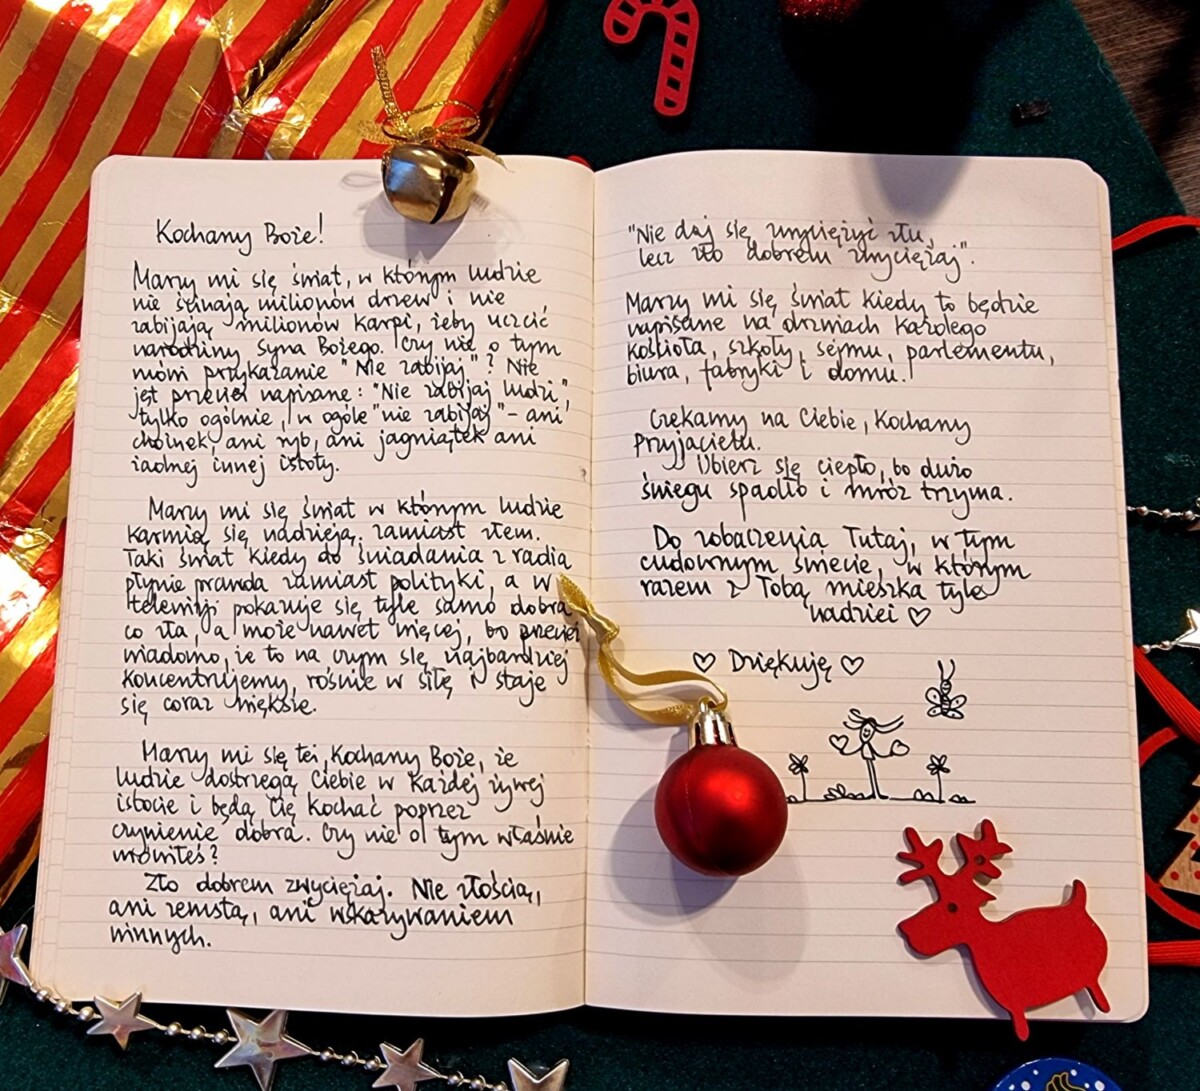 Kochany Boże!
Marzy mi się świat, w którym ludzie
nie ścinają milionów drzew i nie
zabijają milionów karpi, żeby uczcić
narodziny Syna Bożego. Czy nie o tym
mówi przykazanie "Nie zabijaj."? Nie
jest przecież napisane: "Nie zabijaj ludzi",
tylko ogólnie, w ogóle "nie zabijaj" - ani
choinek, ani ryb, ani jagniątek ani
żadnej innej istoty.
Marzy mi się świat w którym ludzie
karmią się nadzieją, zamiast złem.
Taki świat kiedy do śniadania z radia
płynie prawda zamiast polityki, a w
telewizji pokazuje się tyle samo dobra
co zła, a może nawet więcej, bo przecież
wiadomo, że to na czym się najbardziej
koncentrujemy, rośnie w siłę i staje
się coraz większe.
Marzy mi się też, Kochany Boże, że
ludzie dostrzegą Ciebie w każdej żywej
istocie i będą Cię kochać poprzez
czynienie dobra. Czy nie o tym właśnie
mówiłeś?
Zło dobrem zwyciężaj. Nie złością,
ani zemstą, ani wskazywaniem
winnych.
"Nie daj się zwyciężyć złu,
lecz zło dobrem zwyciężaj".
Marzy mi się świat kiedy to będzie
napisane na drzwiach każdego
kościoła, szkoły, sejmu, parlementu,
biura, fabryki i domu!
Czekamy na Ciebie, Kochany
Przyjacielu.
Ubierz się ciepło, bo dużo
śniegu spadło i mróz trzyma.
Do zobaczenia Tutaj, w tym
cudownym świecie, w którym
razem z Tobą mieszka tyle
nadziei ♡
♡ Dziękuję ♡